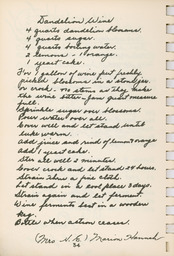 Dandelion Wine
4 quarts dandelion blossoms
4 quarts sugar.
4 quarts boiling water.
2 lemons - 1 orange.
1 yeast cake.
For 1 gallon of wine put freshly
picked blossoms in a stone jar
or crock. no stems as they make
the wine bitter. full.
Sprinkle sugar over blossoms
Pour water over all.
Cover well and let stand until
luke warm.
Add juice and rind of lemon & orange
Add 1 yeast cake.
Stir all well 2 minutes.
Cover crock and let stand 24 hours.
Strain thru a fine cloth.
Let stand in a cool place 3 days.
Strain again and let ferment.
Wine ferments best in a wooden
keg.
Bottle when action ceases.
(Mrs. N. E.) Marion Hannah
36